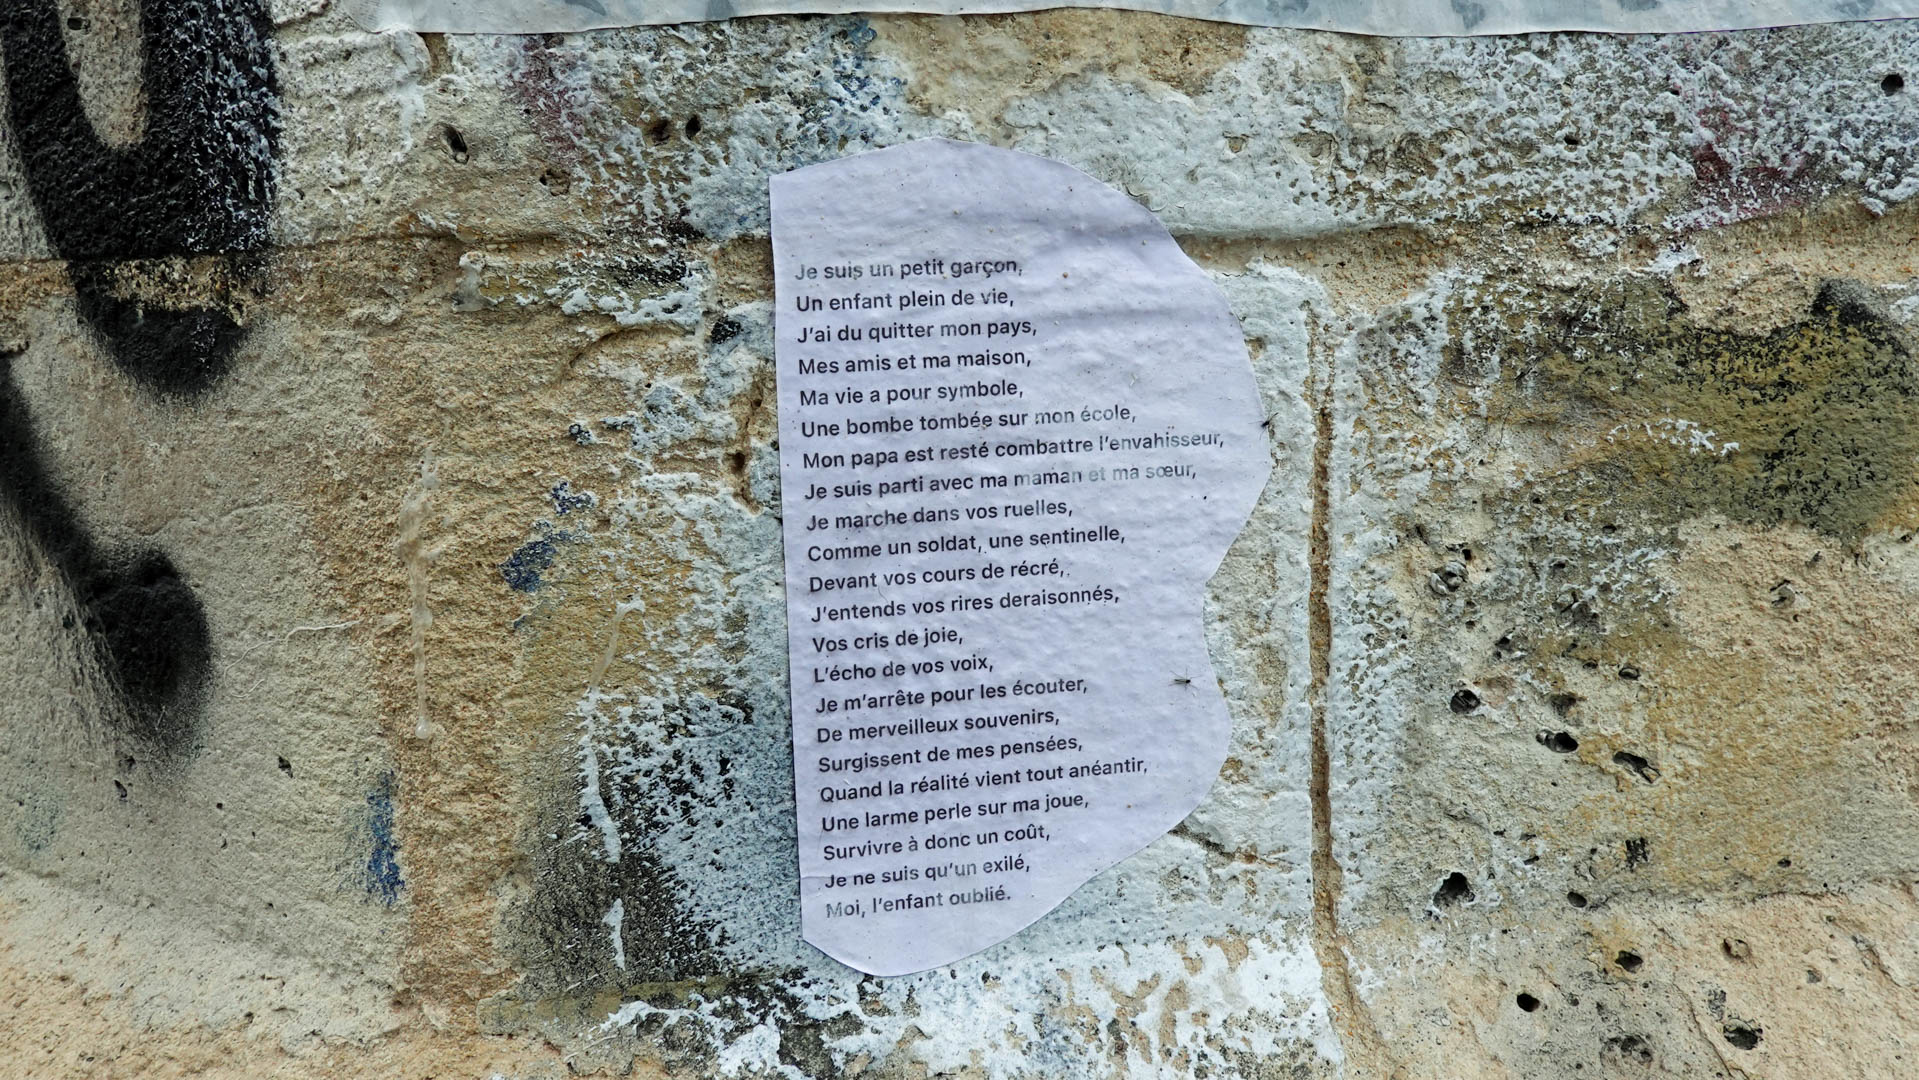 Je suis un petit garçon,
Un enfant plein de vie,
J'ai du quitter mon pays,
Mes amis et ma maison,
Ma vie a pour symbole,
Une bombe tombée sur mon école,
Mon papa est resté combattre l'envahisseur,
Je suis parti avec ma maman et ma sœur,
Je marche dans vos ruelles,
Comme un soldat, une sentinelle,
Devant vos cours de récré,
J'entends vos rires deraisonnés,
Vos cris de joie,
L'écho de vos voix,
Je m'arrête pour les écouter,
De merveilleux souvenirs,
Surgissent de mes pensées,
Quand la réalité vient tout anéantir,
Une larme perle sur ma joue,
Survivre à donc un coût,
Je ne suis qu'un exilé,
Moi, l'enfant oublié.